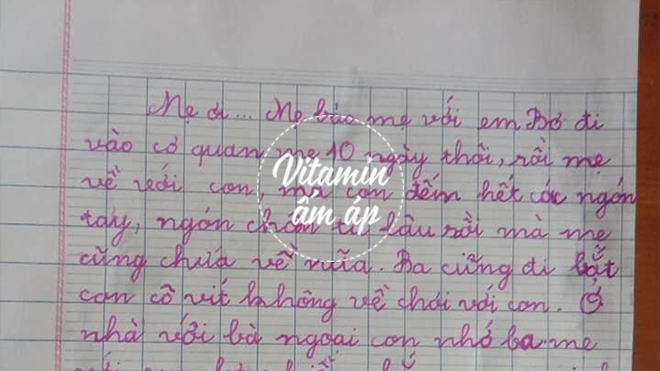 Mẹ ơi... Mẹ bảo mẹ với em Bơ đi
vào cơ quan mẹ 10 ngày thôi, rồi mẹ
về với con, mà con đếm hết các ngón
tay, ngón chân từ lâu rồi mà mẹ
cũng chưa về nữa. Ba cũng đi bắt
con cô vít không về chơi với con. Ở
nhà với bà ngoại con nhớ ba mẹ
Vitamin
ấm áp